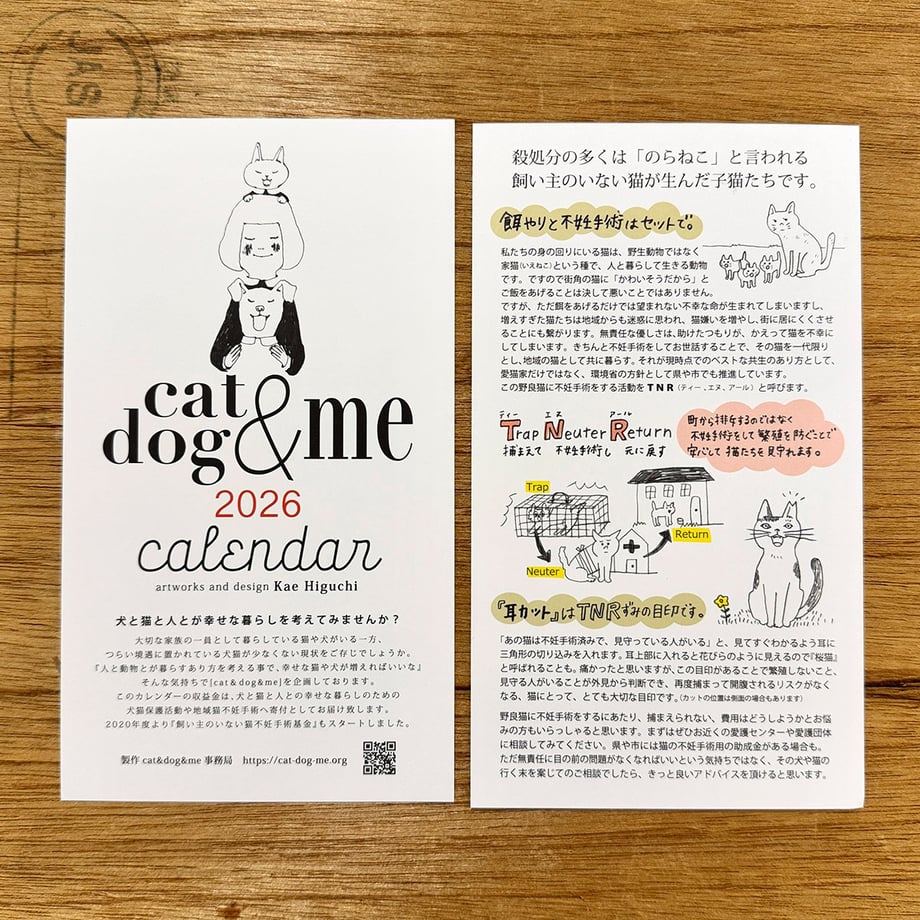 JAS
cat
dog&me
2026
calendar
artworks and design Kae Higuchi
犬と猫と人とが幸せな暮らしを考えてみませんか？
大切な家族の一員として暮らしている猫や犬がいる一方、
つらい境遇に置かれている犬猫が少なくない現状をご存じでしょうか。
『人と動物とが暮らすあり方を考える事で、幸せな猫や犬が増えればいいな』
そんな気持ちで[cat&dog&me]を企画しております。
このカレンダーの収益金は、犬と猫と人との幸せな暮らしのための
犬猫保護活動や地域猫不妊手術へ寄付としてお届け致します。
2020年度より『飼い主のいない猫不妊手術基金』もスタートしました。
製作 cat&dog&me 事務局 https://cat-dog-me.org
殺処分の多くは「のらねこ」と言われる
飼い主のいない猫が生んだ子猫たちです。
餌やりと不妊手術はセットで。
私たちの身の回りにいる猫は、野生動物ではなく
家猫(いえねこ)という種で、人と暮らして生きる動物
です。ですので街角の猫に「かわいそうだから」と
ご飯をあげることは決して悪いことではありません。
ですが、ただ餌をあげるだけでは望まれない不幸な命が生まれてしまいますし、
増えすぎた猫たちは地域からも迷惑に思われ、猫嫌いを増やし、街に居にくくさせ
ることにも繋がります。無責任な優しさは、助けたつもりが、かえって猫を不幸に
してしまいます。きちんと不妊手術をしてお世話することで、その猫を一代限り
とし、地域の猫として共に暮らす。それが現時点でのベストな共生のあり方として、
愛猫家だけではなく、環境省の方針として県や市でも推進しています。
この野良猫に不妊手術をする活動をTNR（ティー、エヌ、アール）と呼びます。
ティー エヌ アール
Trap Neuter Return
捕まえて 不妊手術し 元に戻す
町から排斥するのではなく
不妊手術をして繁殖を防ぐことで
安心して猫たちを見守れます。
Trap
Return
Neuter
『耳カット』はTNRずみの目印です。
「あの猫は不妊手術済みで、見守っている人がいる」と、見てすぐわかるよう耳に
三角形の切り込みを入れます。耳上部に入れると花びらのように見えるので『桜猫』
と呼ばれることも。痛かったと思いますが、この目印があることで繁殖しないこと、
見守る人がいることが外見から判断でき、再度捕まって開腹されるリスクがなく
なる、猫にとって、とても大切な目印です。(カットの位置は側面の場合もあります)
野良猫に不妊手術をするにあたり、捕まえられない、費用はどうしようかとお悩
みの方もいらっしゃると思います。まずはぜひお近くの愛護センターや愛護団体
に相談してみてください。県や市には猫の不妊手術用の助成金がある場合も。
ただ無責任に目の前の問題がなくなればいいという気持ちではなく、その犬や猫の
行く末を案じてのご相談でしたら、きっと良いアドバイスを頂けると思います。